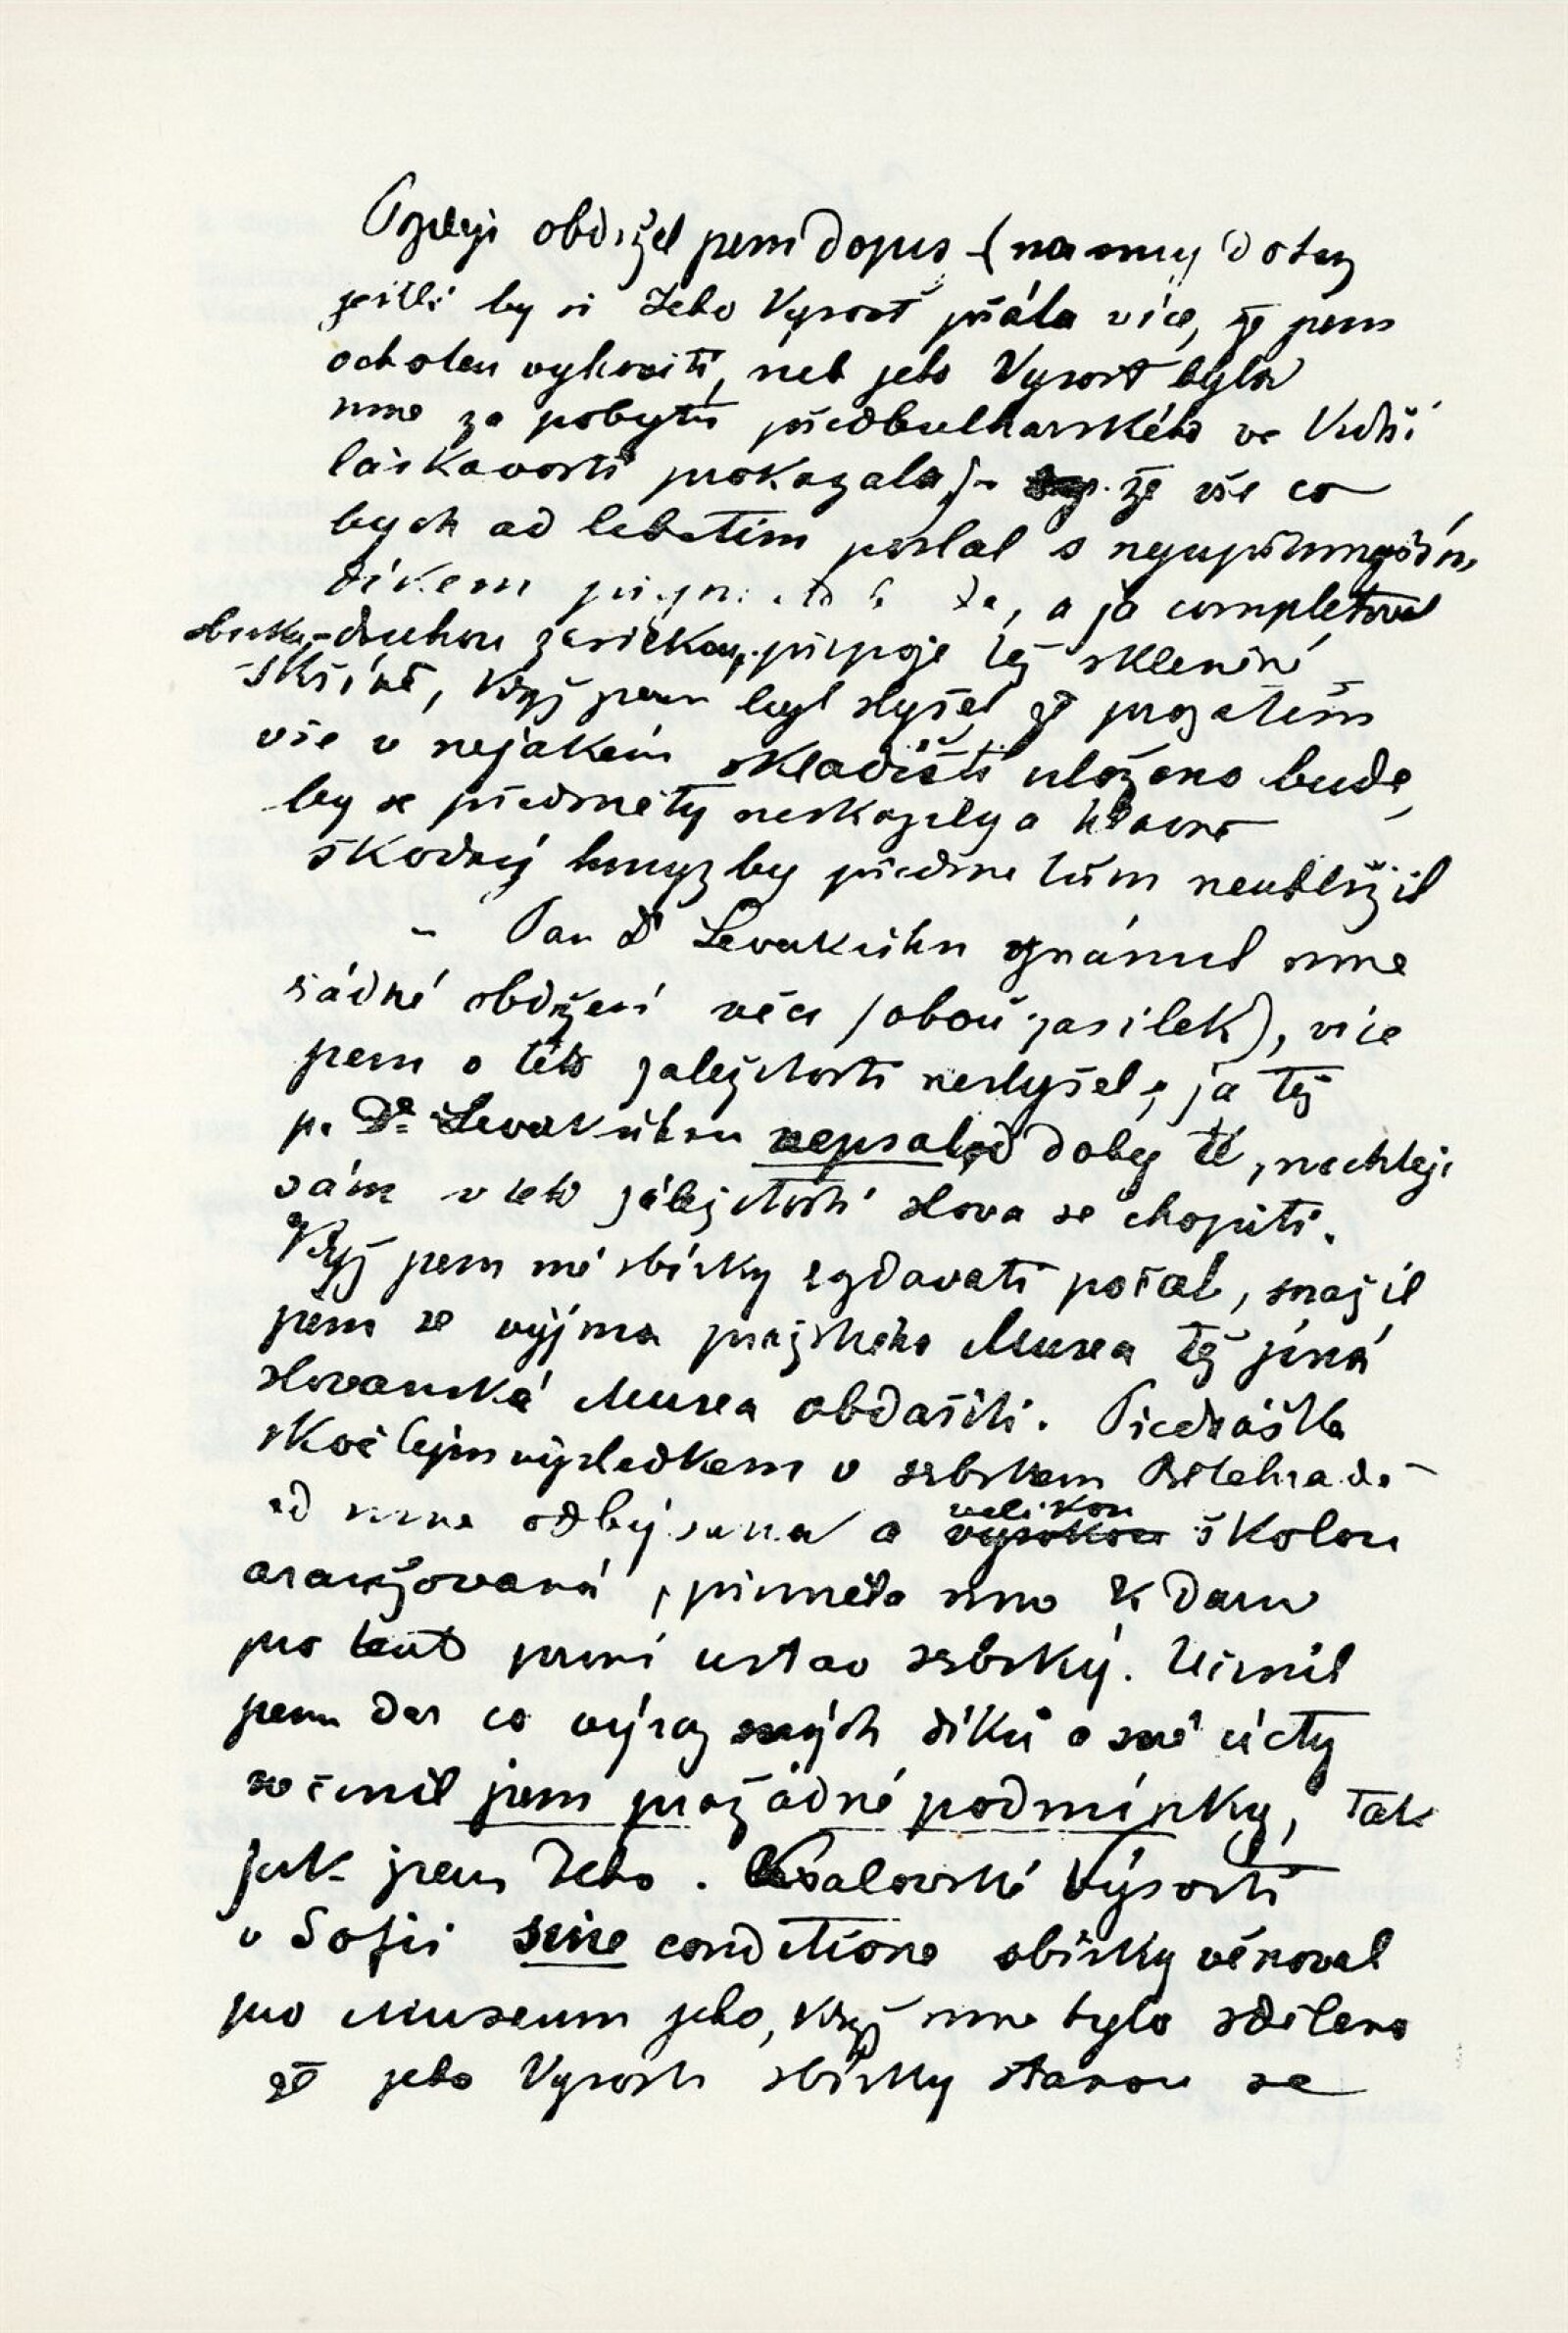 Později obdržel jsem dopus (na můj dotaz
jestli by si Jeho Vysost přála více, že jsem
ochoten vyhověti, neb jeho Vysost byla
mne za pobytu předbulharského ve Vídni
láskavosti prokazala)- že vše co
bych ad libitim poslal s nejupřímnějším
díkem a já completoval
sbirku, druhou zasilkou, připoje též skleněné
skříně, když jsem byl slyšel že prozatim
vše v nejakém skladišti uloženo bude,
by se předměty neskazily a hlavně
škodný hmyz by předmetům neublížil
- Pan Dr Leverkühn oznámil mne
řádné obdržení věcí (obou zasilek), více
jsem o této zaležitosti neslyšel, já též
p. Dr Leverkühnu nepsal od doby té, nechtěje
sám v teto záležitosti slova se chopiti.
Když jsem mé sbírky rozdavati počal, snažil
jsem se vyjma pražského Musea též jiná
slovanská Musea obdařiti. Přednáška
skvělým výsledkem v srbskem Bělehradě
od mne odbývana a velikou vysokou školou
aranžovaná, přiměla mne k daru
pro tento první ustav srbský. Učinil
jsem dar co výraz mých díků a mé úcty
nečinil jsem pražádné podmínky, tak
jak jsem Jeho. Kralovské Výsosti
v Sofii sine conditione sbírky věnoval
pro Museum jeho, když mne bylo sděleno
že jeho Vysosti sbírky stanou se